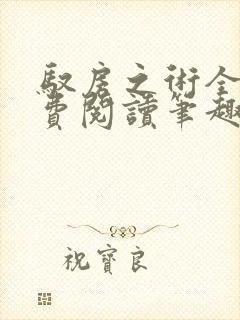 馭房之術全
費閱讀筆趣
祝寶良